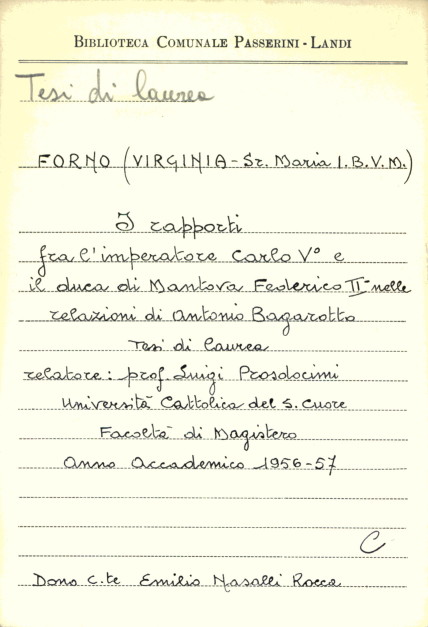 BIBLIOTECA COMUNALE PASSERINI-LANDI
Tesi di laurea
FORNO (VIRGINIA - Sr. Maria I.B.V.M.)
I rapporti
fra l'imperatore Carlo V° e
il duca di Mantova Federico II nelle
relazioni di Antonio Bagarotto
Tesi di laurea
relatore: prof. Luigi Prosdocimi
Università Cattolica del S. Cuore
Facoltà di Magistero
Anno Accademico 1956-57
C
Dono C.te Emilio Nasalli Rocca